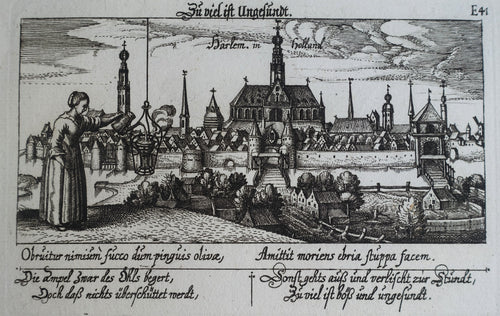 Zu viel ist Ungesundt.
E41
Harlem in Holland
Obruitur nimium succo dum pinguis olivæ,
Amittit moriens ebria stuppa facem.
Die Ampel zwar des Ohls begert,
Doch daß nichts überschüttet werdt,
Sonst gehts auß und verlischt zur Stundt,
Zu viel ist böß und ungesundt.